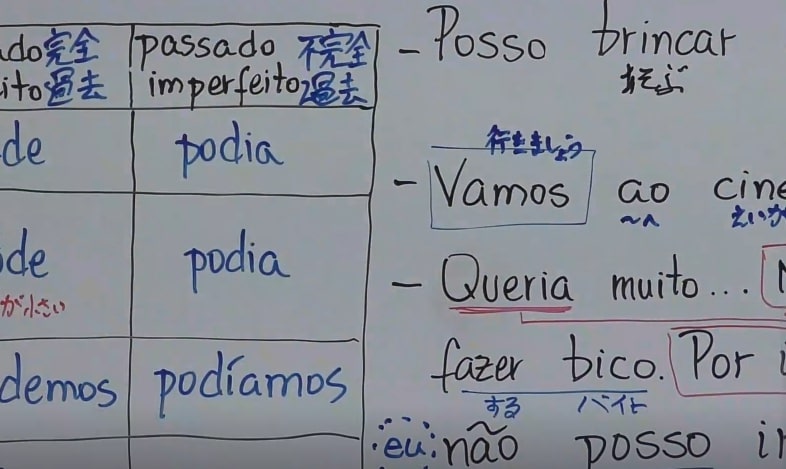 ado完全 passado 不完全
ito過去 imperfeito過去
de podia
de podia
が小さい
demos podíamos
- Posso brincar
あそぶ
行きましょう
- Vamos ao cine
～へ えいが
- Queria muito...
fazer bico. Por i
する バイト
eu: não posso ir